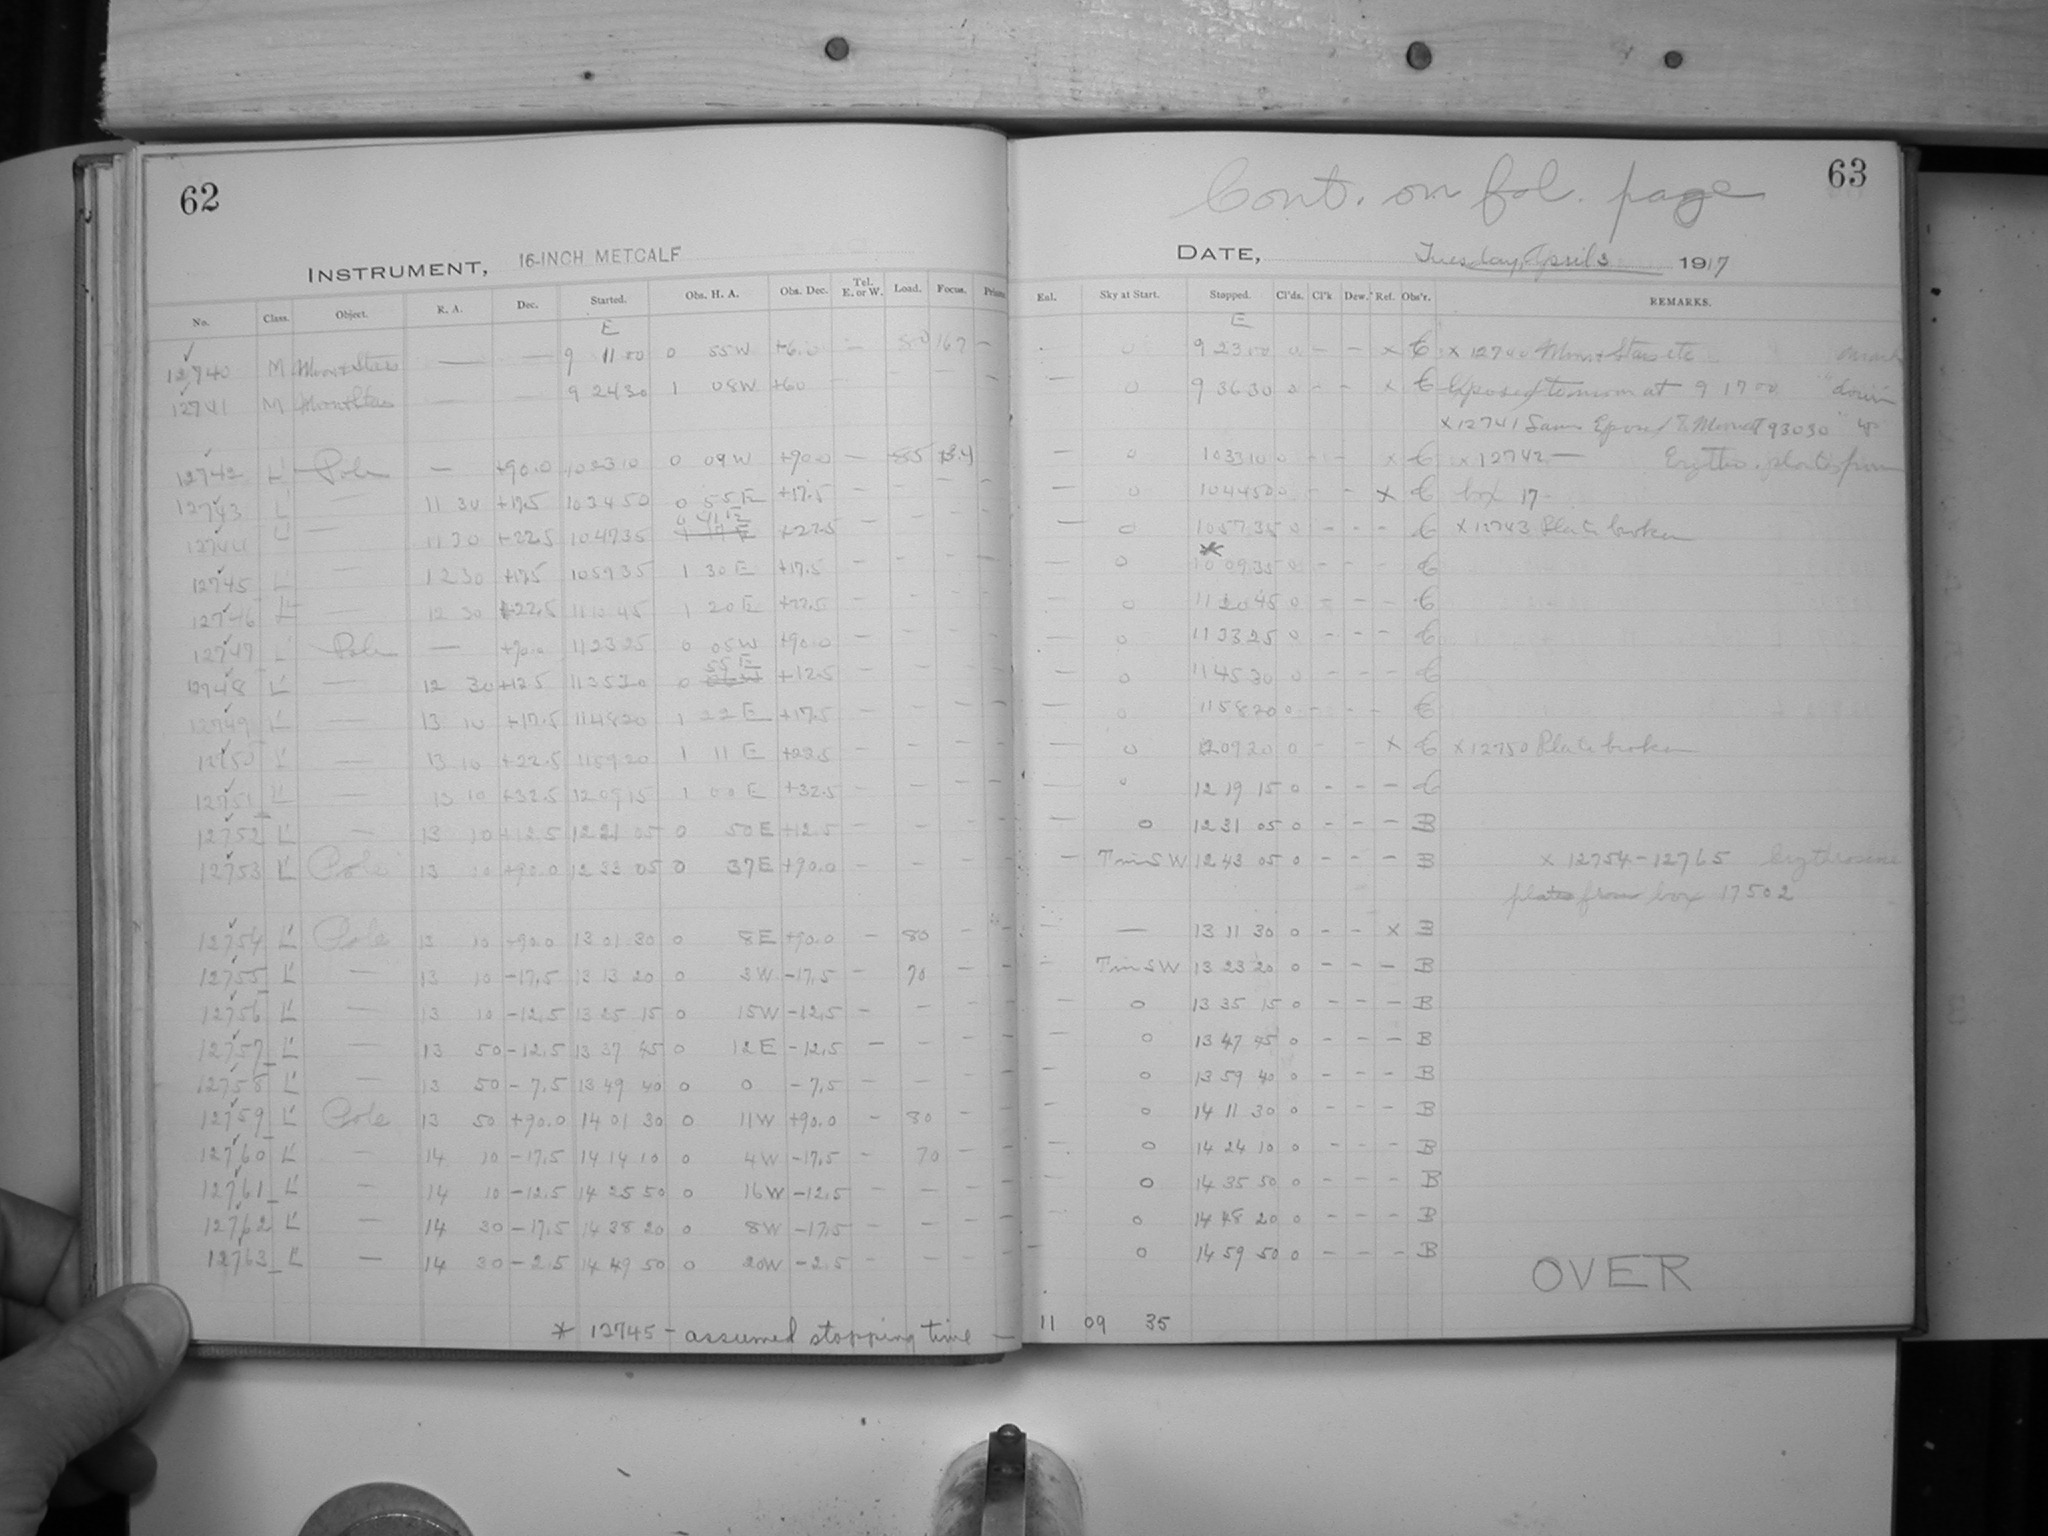 62
INSTRUMENT, 16-INCH METCALF
No. Class. Object. R. A. Dec. Started. Obs. H. A. Obs. Dec. Tel. E. or W. Load. Focus.
E
12740 M Moon+Stars — — 9 11 00 0 55W —
12741 M — — 9 24 30 1 08W +60 — — — —
12742 L Pole — +90.0 10 23 10 0 09W +90.0 — 85
12743 L — 11 30 +17.5 10 34 50 0 55E +17.5 — — — —
0 41E
12744 L — 11 30 +22.5 10 47 35 +22.5 — — — —
12745 L — 12 30 +17.5 10 59 35 1 30E +17.5 — — — —
12746 L — 12 30 +22.5 11 10 45 1 20E +22.5 — — — —
12747 L Pole — +90.0 11 23 25 0 05W +90.0 — — — —
55E
12748 L — 12 30 +12.5 11 35 30 0 +12.5 — — — —
12749 L — 13 10 +17.5 11 48 20 1 22E +17.5 — — — —
12750 L — 13 10 +22.5 11 59 20 1 11E +22.5 — — — —
12751 L — 13 10 +32.5 12 09 15 1 00E +32.5 — — — —
12752 L — 13 10 +12.5 12 21 05 0 50E +12.5 — — — —
12753 L Pole 13 10 +90.0 12 33 05 0 37E +90.0 — — — —
12754 L Pole 13 10 +90.0 13 01 30 0 8E +90.0 — 80 — —
12755 L — 13 10 -17.5 13 13 20 0 3W -17.5 — 70 — —
12756 L — 13 10 -12.5 13 25 15 0 15W -12.5 — — — —
12757 L — 13 50 -12.5 13 37 45 0 12E -12.5 — — — —
12758 L — 13 50 -7.5 13 49 40 0 0 -7.5 — — — —
12759 L Pole 13 50 +90.0 14 01 30 0 11W +90.0 — 80 — —
12760 L — 14 10 -17.5 14 14 10 0 4W -17.5 — 70 — —
12761 L — 14 10 -12.5 14 25 50 0 16W -12.5 — — — —
12762 L — 14 30 -17.5 14 38 20 0 8W -17.5 — — — —
12763 L — 14 30 -2.5 14 49 50 0 20W -2.5 — — — —
* 12745 - assumed stopping time — 11 09 35
63
Cont. on fol. page
DATE, Tuesday, April 3 1917
Sky at Start. Stopped. Cl'ds. Cl'k Dew. Ref. Obs'r. REMARKS.
E
0 9 23 00 0 - - x C x 12740 Moon+Stars etc
— 0 9 36 30 0 - - x C Exposed to moon at 9 17 00 "down
x 12741 Same Exposed to Moon at 9 30 30
— 0 10 33 10 0 - - x C x 12742 — Erythro. plates from
— 0 10 44 50 0 - - x C box 17-
— 0 10 57 35 0 - - - C x 12743 Plate broken
*
— 0 10 09 35 0 - - - C
— 0 11 20 45 0 - - - C
— 0 11 33 25 0 - - - C
— 0 11 45 30 0 - - - C
— 0 11 58 20 0 - - - C
— 0 12 09 20 0 - - x C x 12750 Plate broken
— 0 12 19 15 0 - - - C
0 12 31 05 0 - - - B
— T in SW 12 43 05 0 - - - B x 12754-12765 Erythrosine
plates from box 17502
— 13 11 30 0 - - x B
T in SW 13 23 20 0 - - - B
0 13 35 15 0 - - - B
0 13 47 45 0 - - - B
0 13 59 40 0 - - - B
0 14 11 30 0 - - - B
0 14 24 10 0 - - - B
0 14 35 50 0 - - - B
0 14 48 20 0 - - - B
0 14 59 50 0 - - - B
OVER